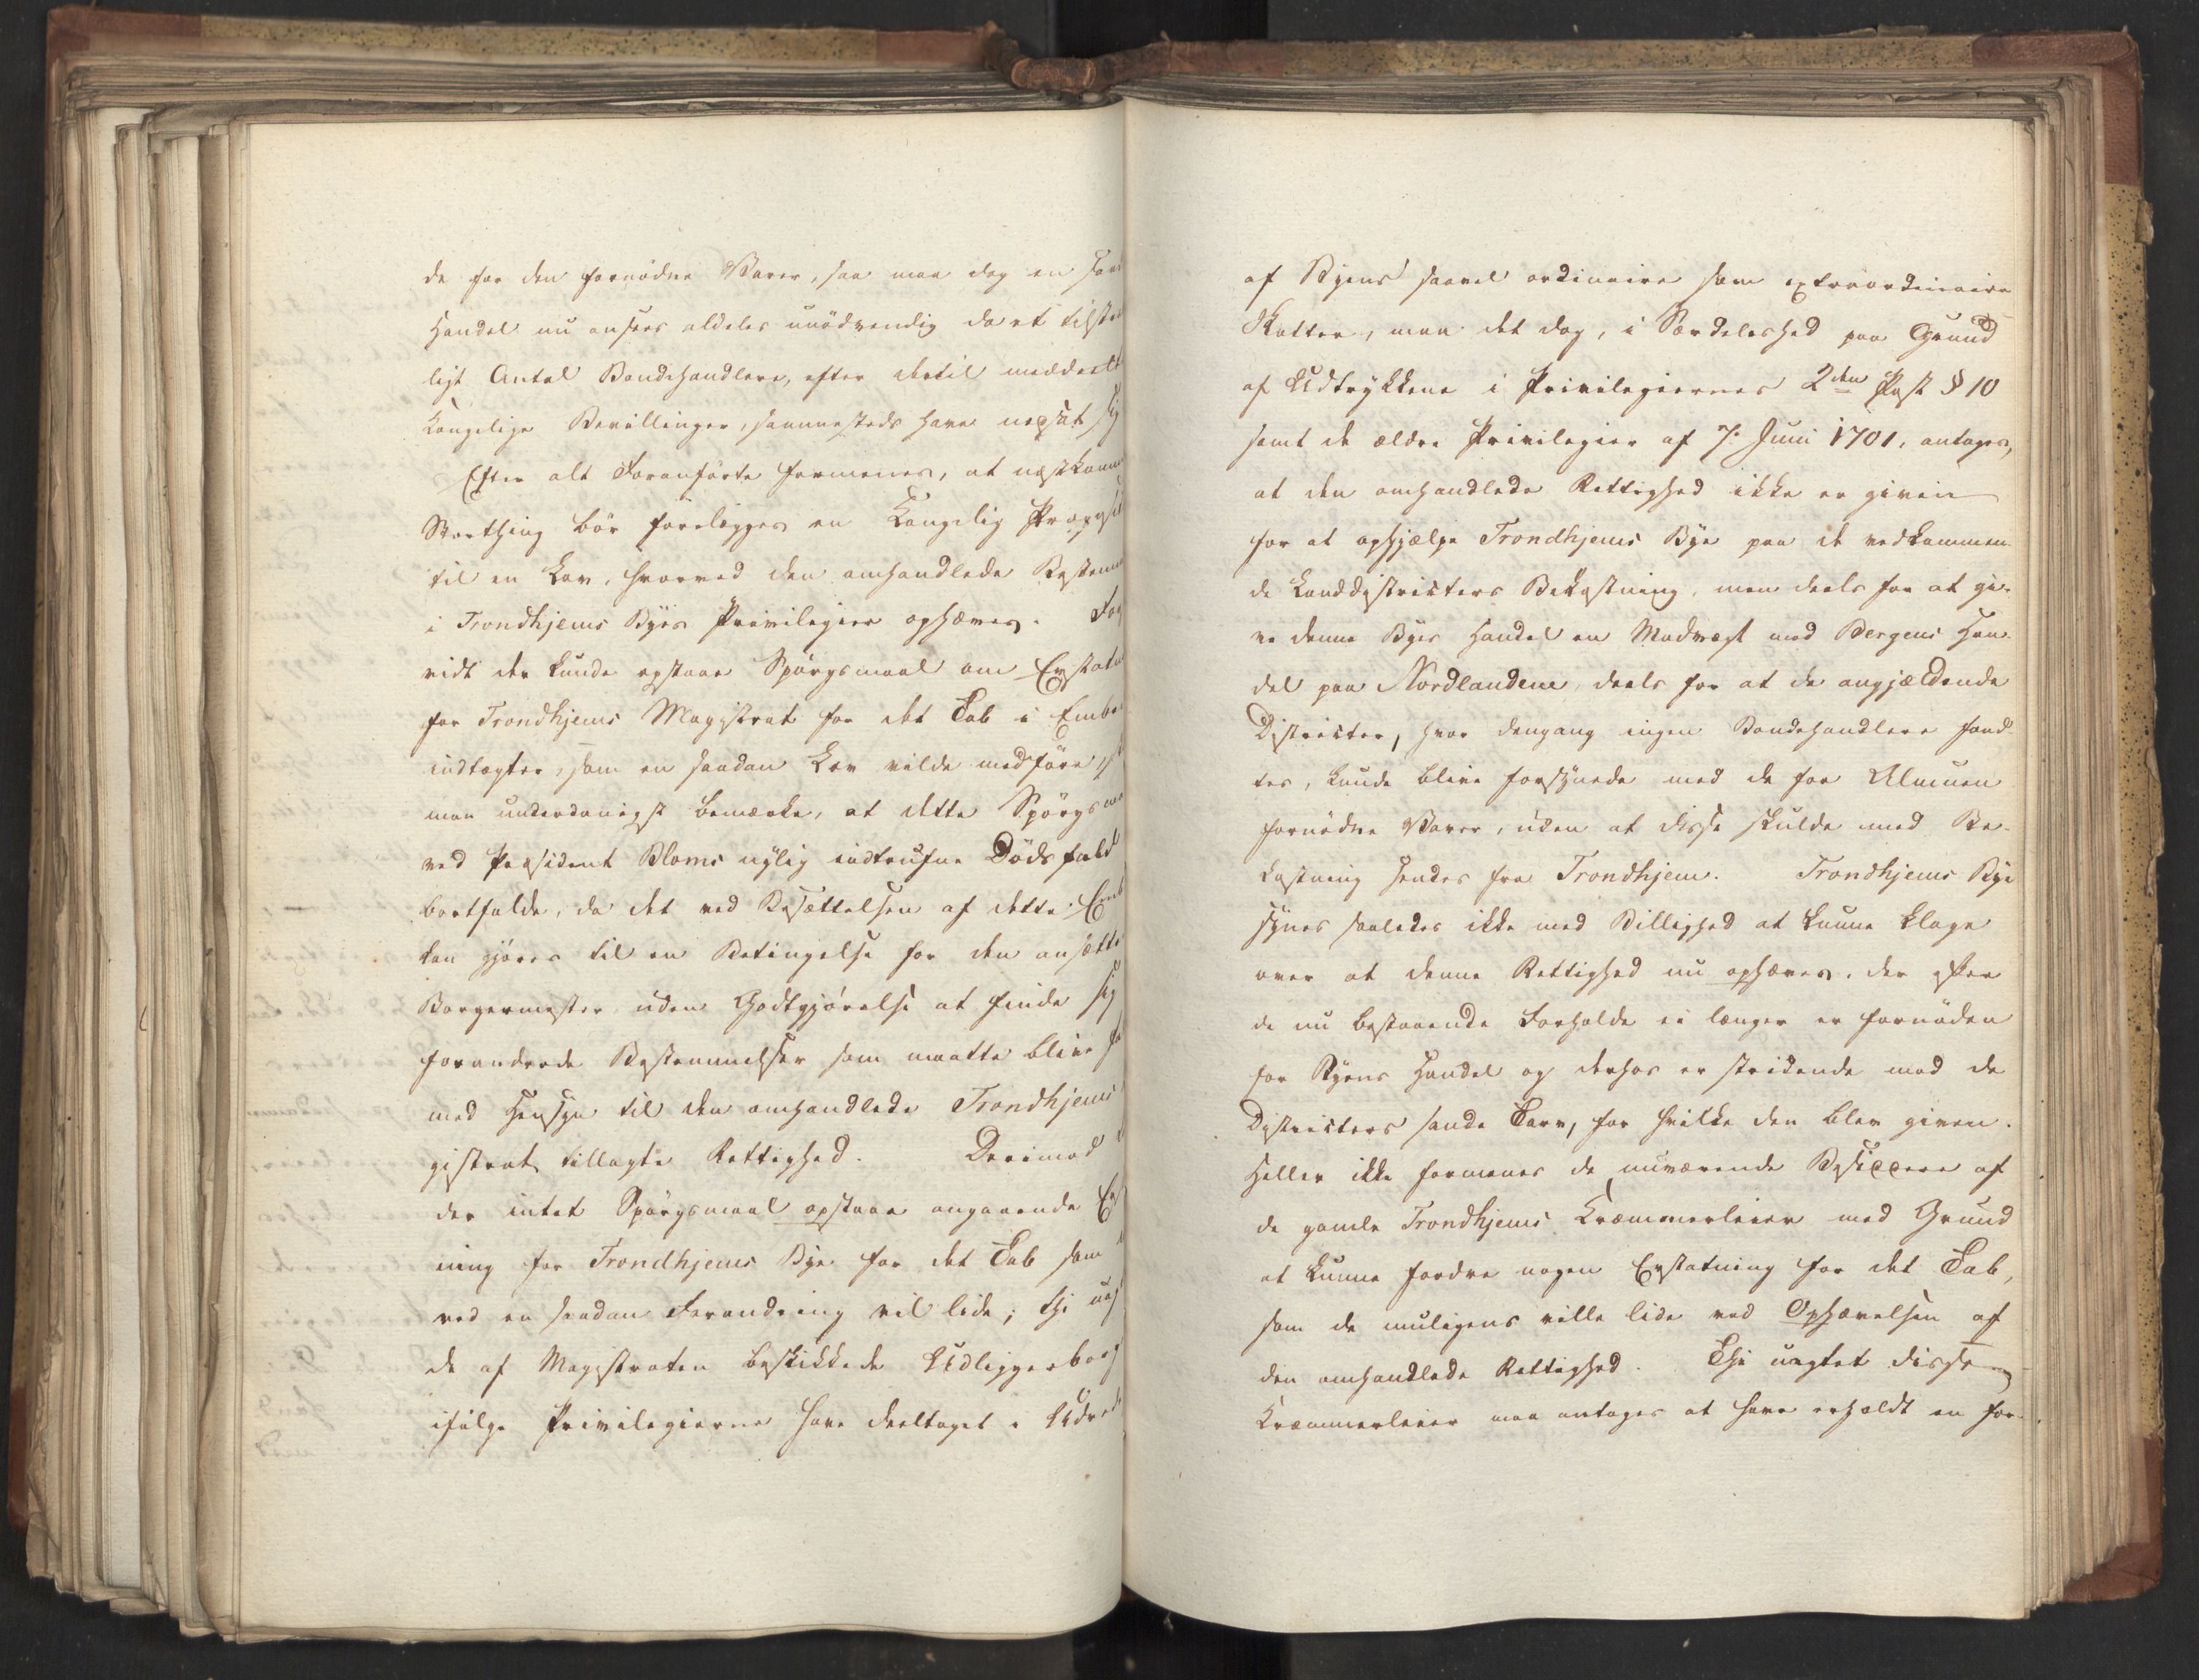 de for den fornödne Varer, saa maa dog en saad
Handel nu ansees aldeles unödvendig da et tilstræ
ligt Antal Bondehandlere, efter dertil meddeelte
Kongelige Bevillinger, sammesteds have nedsat sig
Efter alt Foranförte formenes, at næstkomm
Storthing bör forelægges en Kongelig Proposit
til en Lov, hvorved den omhandlede Bestemm
i Trondhjems Byes Privilegier ophæves. For
vidt der kunde opstaae Spörgsmaal om Erstatn
for Trondhjems Magistrat for det Tab i Embe
indtægter, som en saadan Lov vilde medföre,
maa underdanigst bemærke, at dette Spörgsma
ved Præsident Bloms nylig indtrufne Dödsfald
bortfalde, da det ved Besættelsen af dette Emb
kan gjöres til en Betingelse for den ansatte
Borgermester uden Godtgjörelse at finde sig
forandrede Bestemmelser som maatte blive fo
med Hensyn til den omhandlede Trondhjems
gistrat tillagte Rettighed. Derimod
der intet Spörgsmaal opstaae angaaende Er
ning for Trondhjems Bye for det Tab som
ved en saadan Forandring vil lide; thi uag
de af Magistraten beskikkede Udliggerborg
ifölge Privilegierne have deeltaget i Udred
af Byens saavel ordinaire som extraordinaire
Skatter, maa det dog, i Særdeleshed paa Grund
af Udtrykkene i Privilegiernes 2den Post § 10
samt de ældre Privilegier af 7. Juni 1701, antages,
at den omhandlede Rettighed ikke er given
for at ophjælpe Trondhjems Bye paa de vedkommen-
de Landdistricters Bekostning, men deels for at gi-
ve denne Byes Handel en Modvægt mod Bergens Han-
del paa Nordlandene, deels for at de angjældende
Districter, hvor dengang ingen Bondehandlere fand-
tes, kunde blive forsynede med de for Almuen
fornödne Varer, uden at disse skulde med Be-
kostning hendes fra Trondhjem. Trondhjems Bye
synes saaledes ikke med Billighed at kunne klage
over at denne Rettighed nu ophæves, der efter
de nu bestaaende Forholde ei længer er fornöden
for Byens Handel og derhos er stridende mod de
Districters sande Tarv, for hvilke den blev given.
Heller ikke formenes de nuværende Besiddere af
de gamle Trondhjems Kræmmerleier med Grund
at kunne fordre nogen Erstatning for det Tab,
som de muligens ville lide ved Ophævelsen af
den omhandlede Rettighed. Thi uagtet disse
Kræmmerleier maa antages at have erholdt en for-